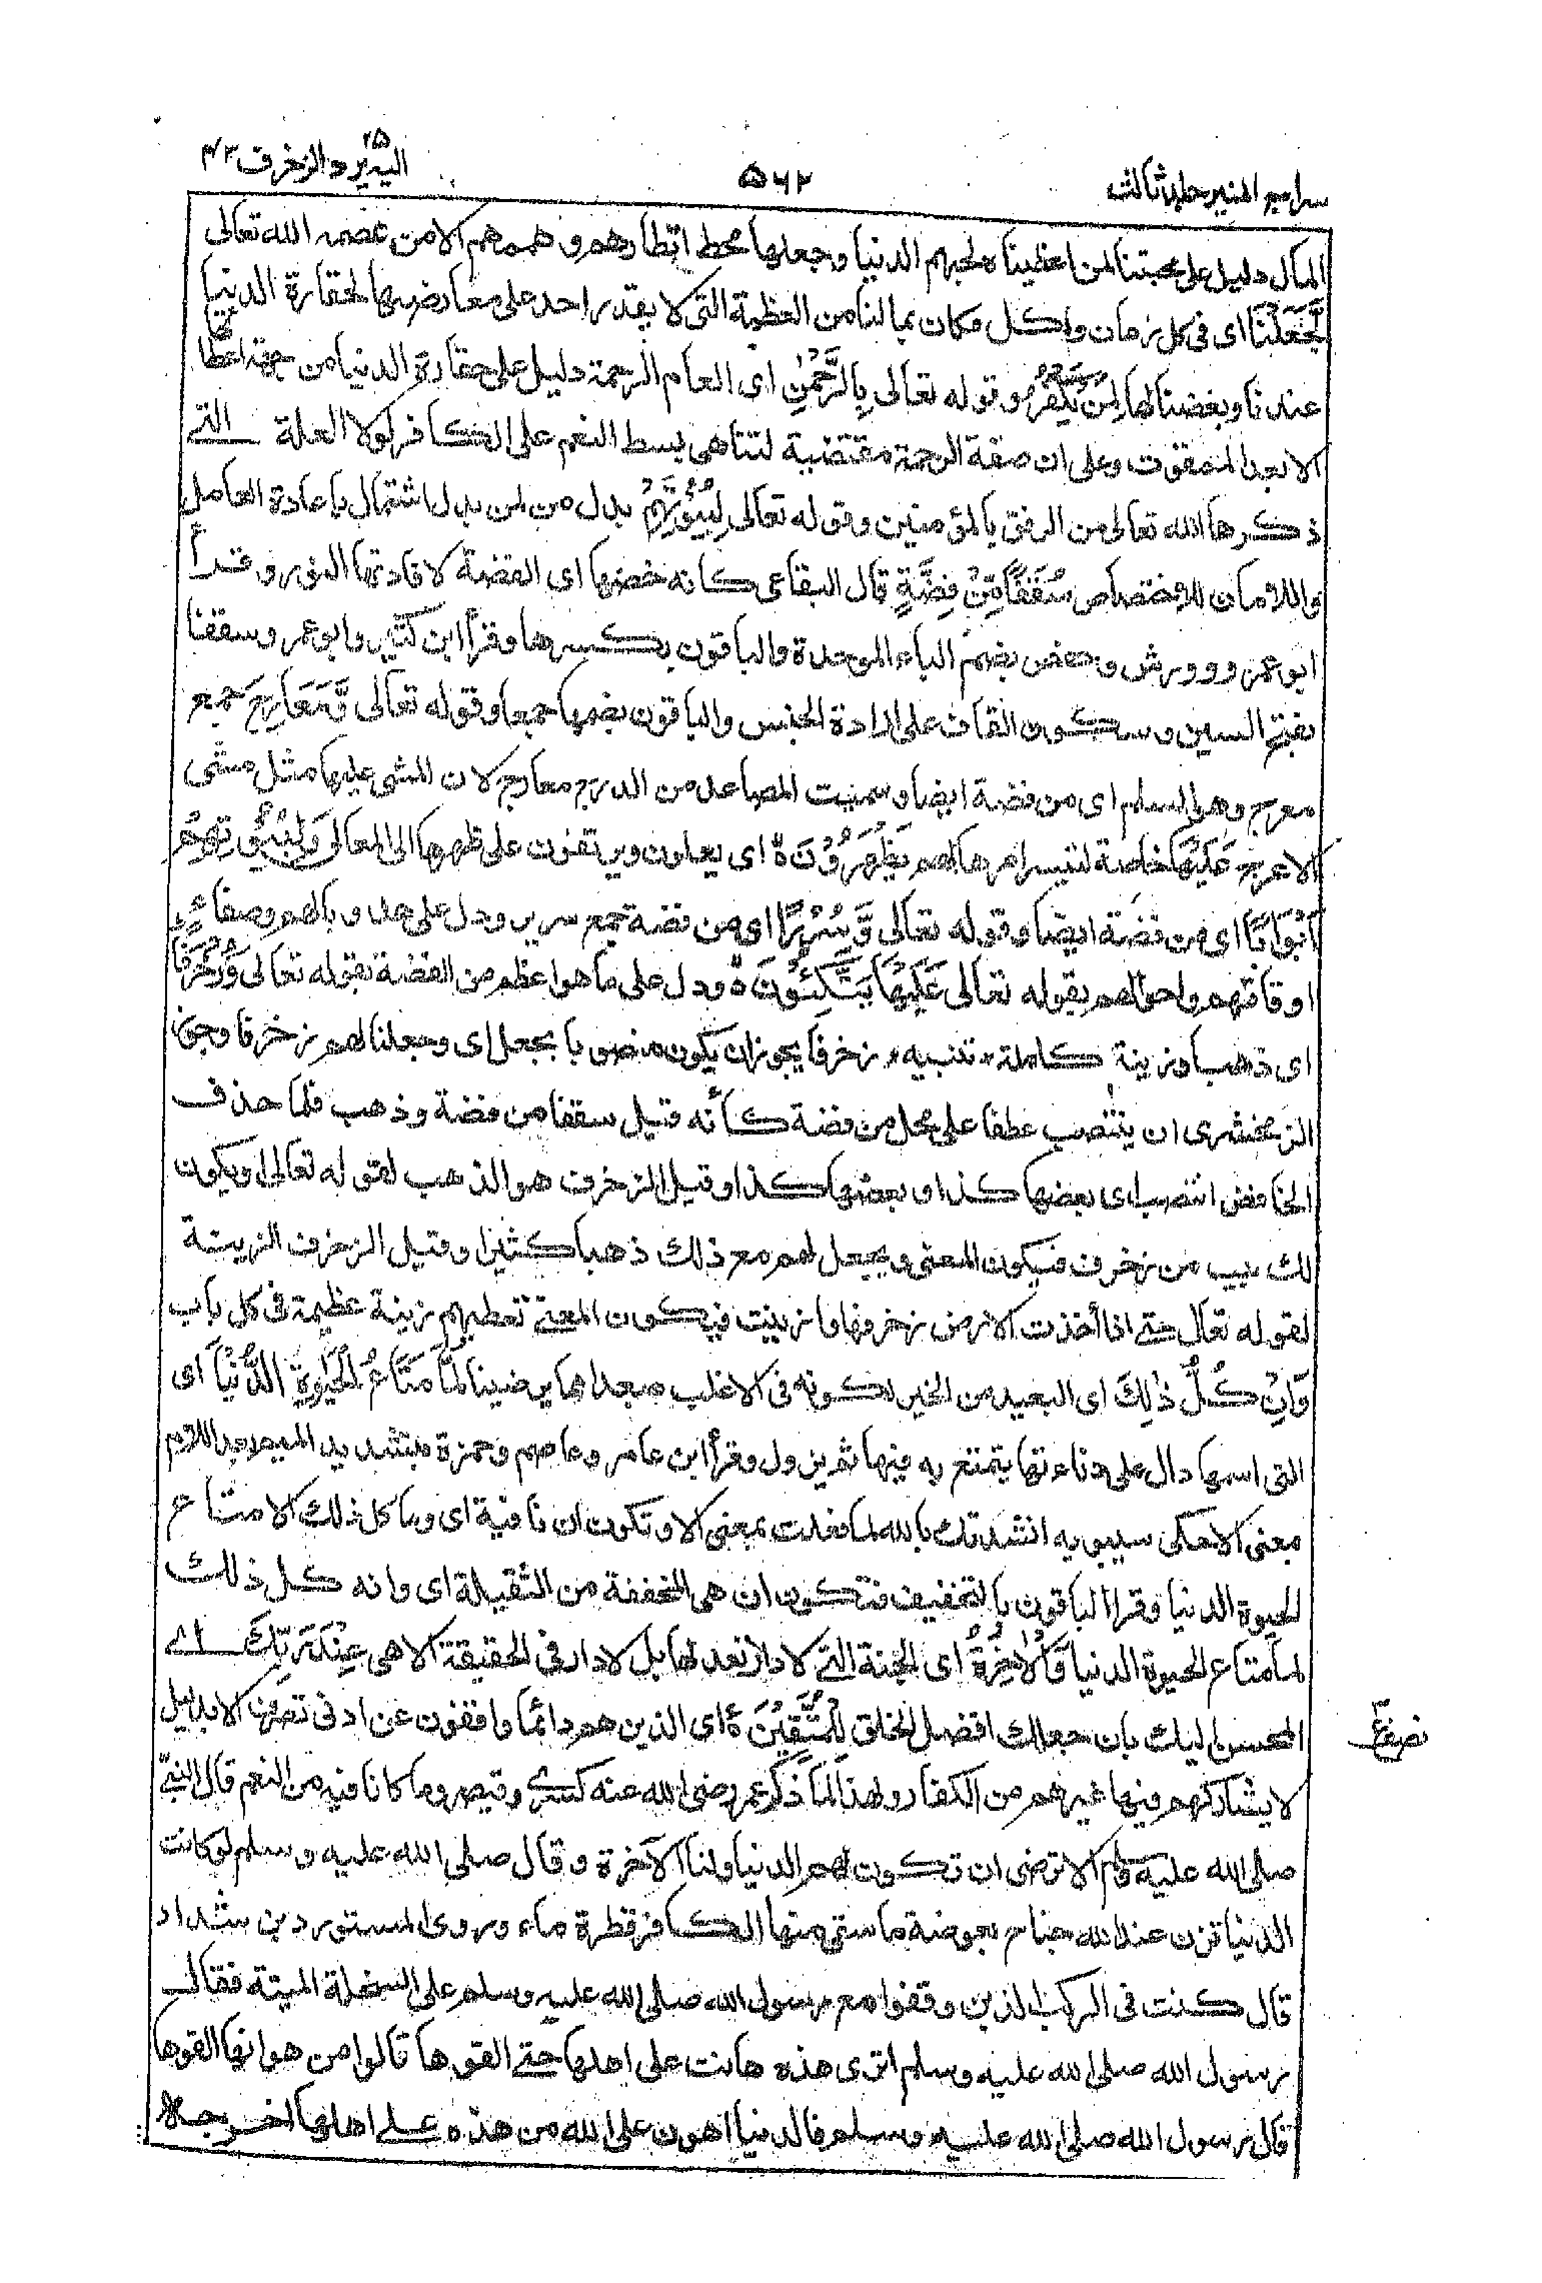 سراج المنير جلد ثالث
۵۶۲
اليه يرد ۲۵ الزخرف ۴۳
المال دليل على محبتنا لمن اعطيناه لحبهم الدنيا وجعلها محط انظارهم وهممهم الا من عصمه الله تعالى
لَّجَعَلْنَا اى فى كل زمان وكل مكان بما لنا من العظمة التى لا يقدر احد على معارضتها لحقارة الدنيا
عندنا وبغضنا لها لِمَنْ يَّكْفُرُ وقوله تعالى بِالرَّحْمٰنِ اى العام الرحمة دليل على حقارة الدنيا من جهة اعطائها
الابعد الممقوت وعلى ان صفة الرحمة مقتضية لتناهى بسط النعم على الكافر لولا العلة التى
ذكرها الله تعالى من الرفق بالمؤمنين وقوله تعالى لِبُيُوْتِهِمْ بدل من لمن بدل اشتمال باعادة العامل
واللامان للاختصاص سُقُفًا مِّنْ فِضَّةٍ قال البقاعى كانه خصها اى الفضة لافادتها النور وقرأ
ابو عمرو وورش وحفص بضم الباء الموحدة والباقون بكسرها وقرأ ابن كثير وابو عمرو سقفا
بفتح السين وسكون القاف على ارادة الجنس والباقون بضمها جمعا وقوله تعالى وَّمَعَارِجَ جمع
معرج وهو السلم اى من فضة ايضا وسميت المصاعد من الدرج معارج لان المشى عليها مثل مشى
الاعرج عَلَيْهَا خاصة لتيسر امرها لهم يَظْهَرُوْنَ ه اى يعلون ويرتقون على ظهرها الى المعالى وَلِبُيُوْتِهِمْ
اَبْوَابًا اى من فضة ايضا وقوله تعالى وَّسُرُرًا اى من فضة جمع سرير ودل على هدو بالهم وصفاء
اوقاتهم واحوالهم بقوله تعالى عَلَيْهَا يَتَّكِئُوْنَ ه ودل على ما هو اعظم من الفضة بقوله تعالى وَزُخْرُفًا
اى ذهبا وزينة كاملة ٭ تنبيه ٭ زخرفا يجوز ان يكون منصوبا بجعل اى وجعلنا لهم زخرفا وجوز
الزمخشرى ان ينتصب عطفا على محل من فضة كأنه قيل سقفا من فضة وذهب فلما حذف
الخافض انتصب اى بعضها كذا وبعضها كذا وقيل الزخرف هو الذهب لقوله تعالى او يكون
لك بيت من زخرف فيكون المعنى ويجعل لهم مع ذلك ذهبا كثيرا وقيل الزخرف الزينة
لقوله تعالى حتى اذا أخذت الارض زخرفها وازينت فيكون المعنى نعطيهم زينة عظيمة فى كل باب
وَاِنْ كُلُّ ذٰلِكَ اى البعيد من الخير لكونه فى الاغلب مبعدا مما يرضينا لَمَّا مَتَاعُ الْحَيٰوةِ الدُّنْيَا اى
التى اسمها دال على دناءتها يتمتع به فيها ثم يزول وقرأ ابن عامر وعاصم وحمزة بتشديد الميم بعد اللام
بمعنى الا حكى سيبويه انشدتك بالله لما فعلت بمعنى الا وتكون ان نافية اى وما كل ذلك الا متاع
الحيوة الدنيا وقرأ الباقون بالتخفيف فتكون ان هى المخففة من الثقيلة اى وانه كل ذلك
لما متاع الحيوة الدنيا وَالْاٰخِرَةُ اى الجنة التى لا دار تعدلها بل لا دار فى الحقيقة الا هى عِنْدَ رَبِّكَ اى
المحسن اليك بان جعلك افضل الخلق لِلْمُتَّقِيْنَ ه اى الذين هم دائما واقفون عن ادنى تصرف الا بدليل
لا يشاركهم فيها غيرهم من الكفار ولهذا لما ذكر عمر رضى الله عنه كسرى وقيصر وما كانا فيه من النعم قال النبى
صلى الله عليه وسلم الا ترضى ان تكون لهم الدنيا ولنا الآخرة وقال صلى الله عليه وسلم لو كانت
الدنيا تزن عند الله جناح بعوضة ما سقى منها الكافر قطرة ماء وروى المستورد بن شداد
قال كنت فى الركب الذين وقفوا مع رسول الله صلى الله عليه وسلم على السخلة الميتة فقال
رسول الله صلى الله عليه وسلم اترى هذه هانت على اهلها حتى القوها قالوا من هوانها القوها
قال رسول الله صلى الله عليه وسلم فالدنيا اهون على الله من هذه على اهلها اخرجه